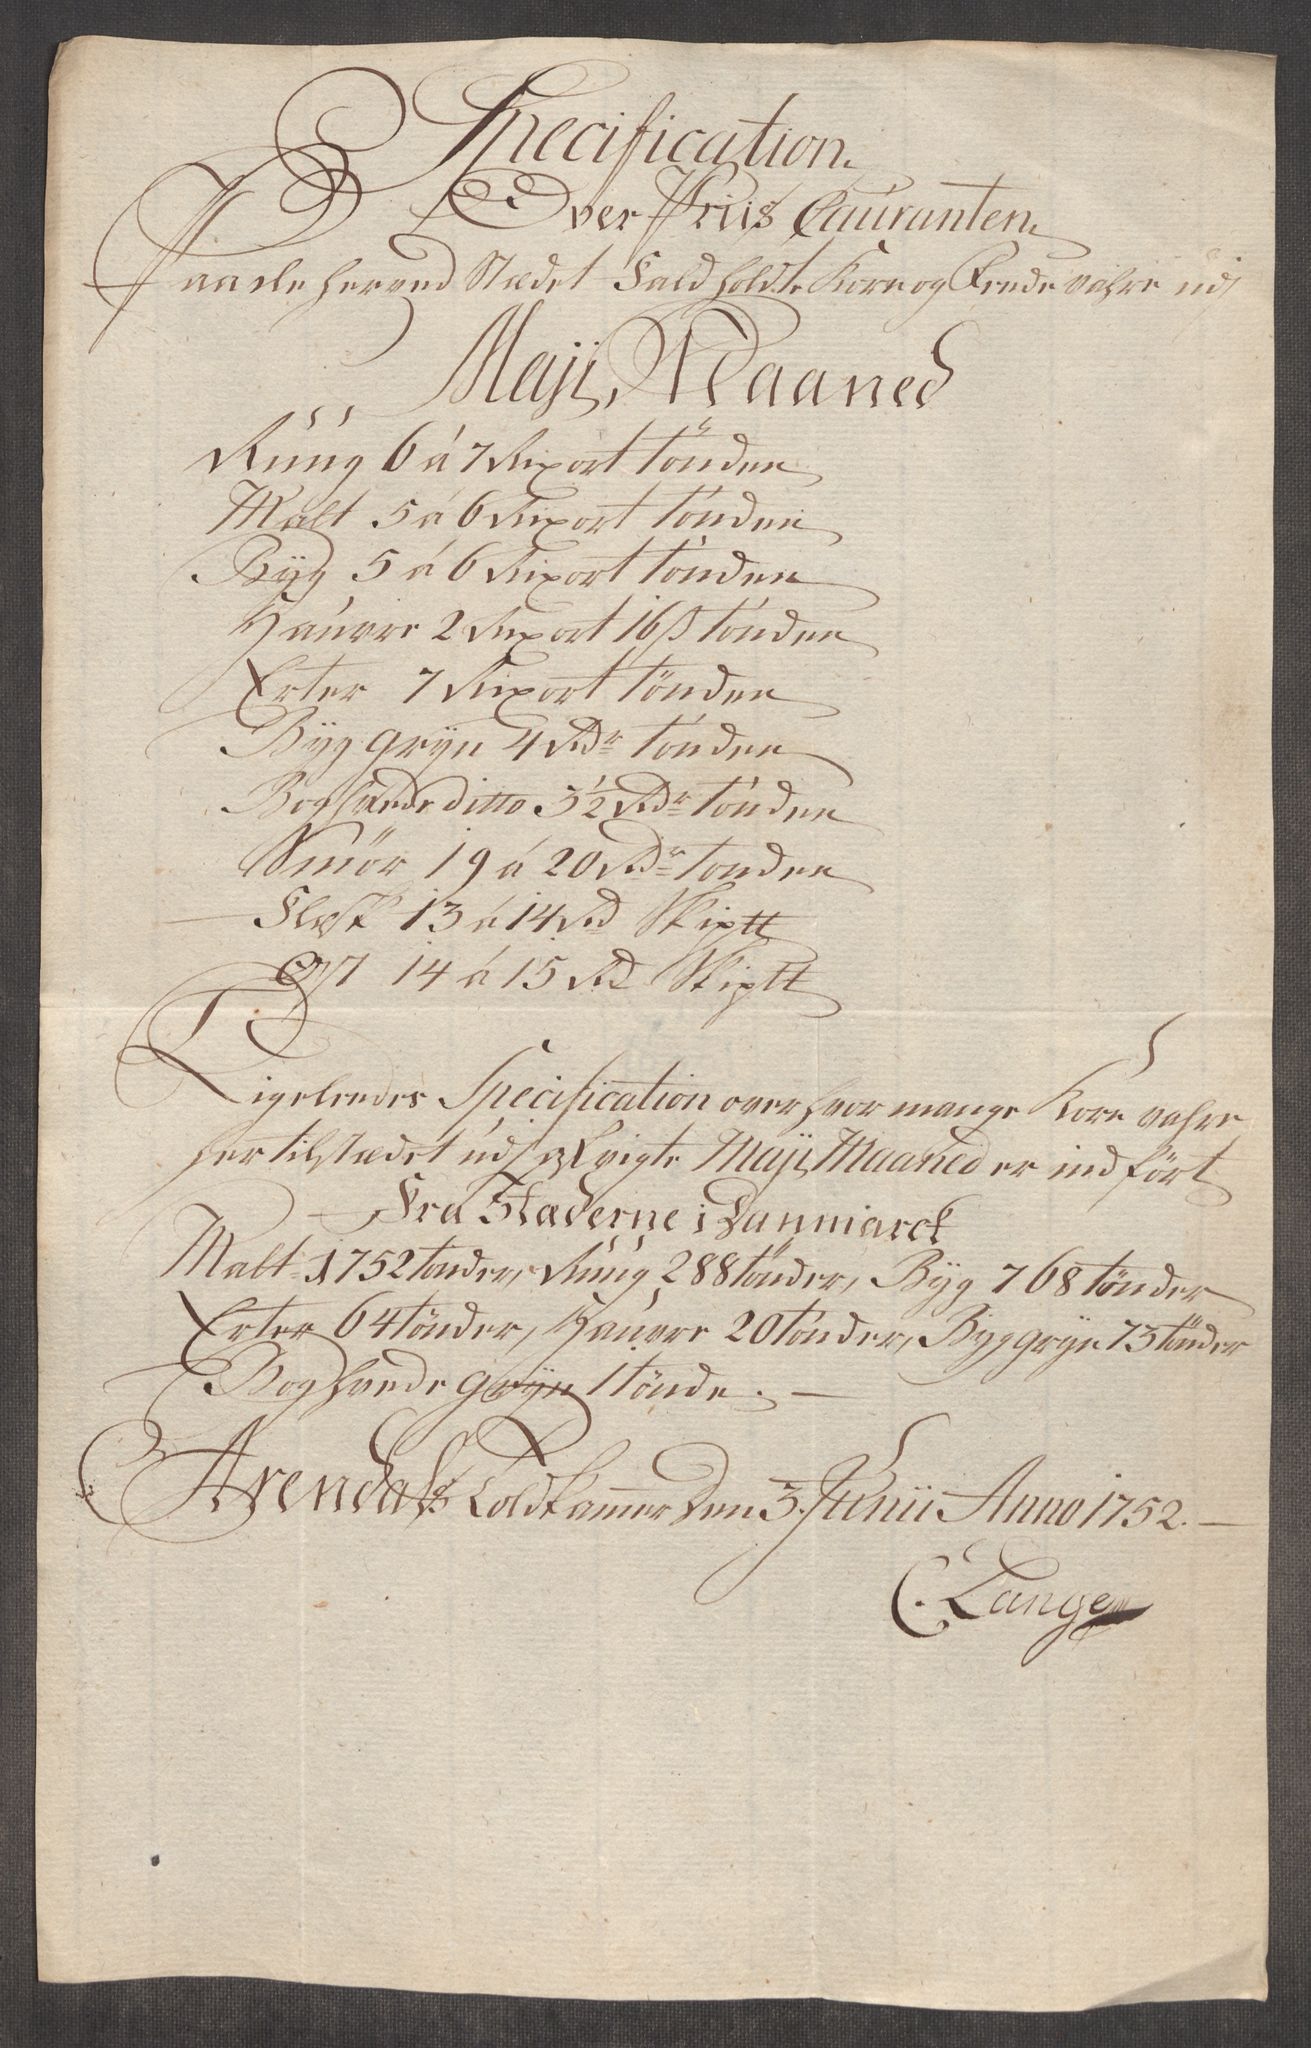 Specification
Over Priis Couranten
Paa de herved Stædet faldholdte Korn og Fede vahre udj
Maji Maaned
Rúúg 6 á 7 Rixort tönden
Malt 5 á 6 Rixort tönden
Byg 5 á 6 Rixort tönden
Haúvre 2 Rixort 16 ß tönden
Erter 7 Rixort tönden
Byg gryn 4 Rdr tönden
Boghvede ditto 5½ Rdr tönden
Smör 19 á 20 Rdr tönden
Flesk 13 á 14 Rd Skip℔
Ost 14 á 15 Rd Skip℔
Ligeleedes Specification over hvor mange Korn vahre
her til stædet udj afvigte Maji Maaned er indfört
Fra Stæderne i Danmarck
Malt 1752 tönder, Rúúg 288 tönder, Byg 768 tönder
Erter 64 tönder, Haúvre 20 tönder, Byggryn 73 tönder
Boghvede gryn 1 tönde.
Arendahls Toldkammer den 3. Junii Anno 1752.
C. Lange